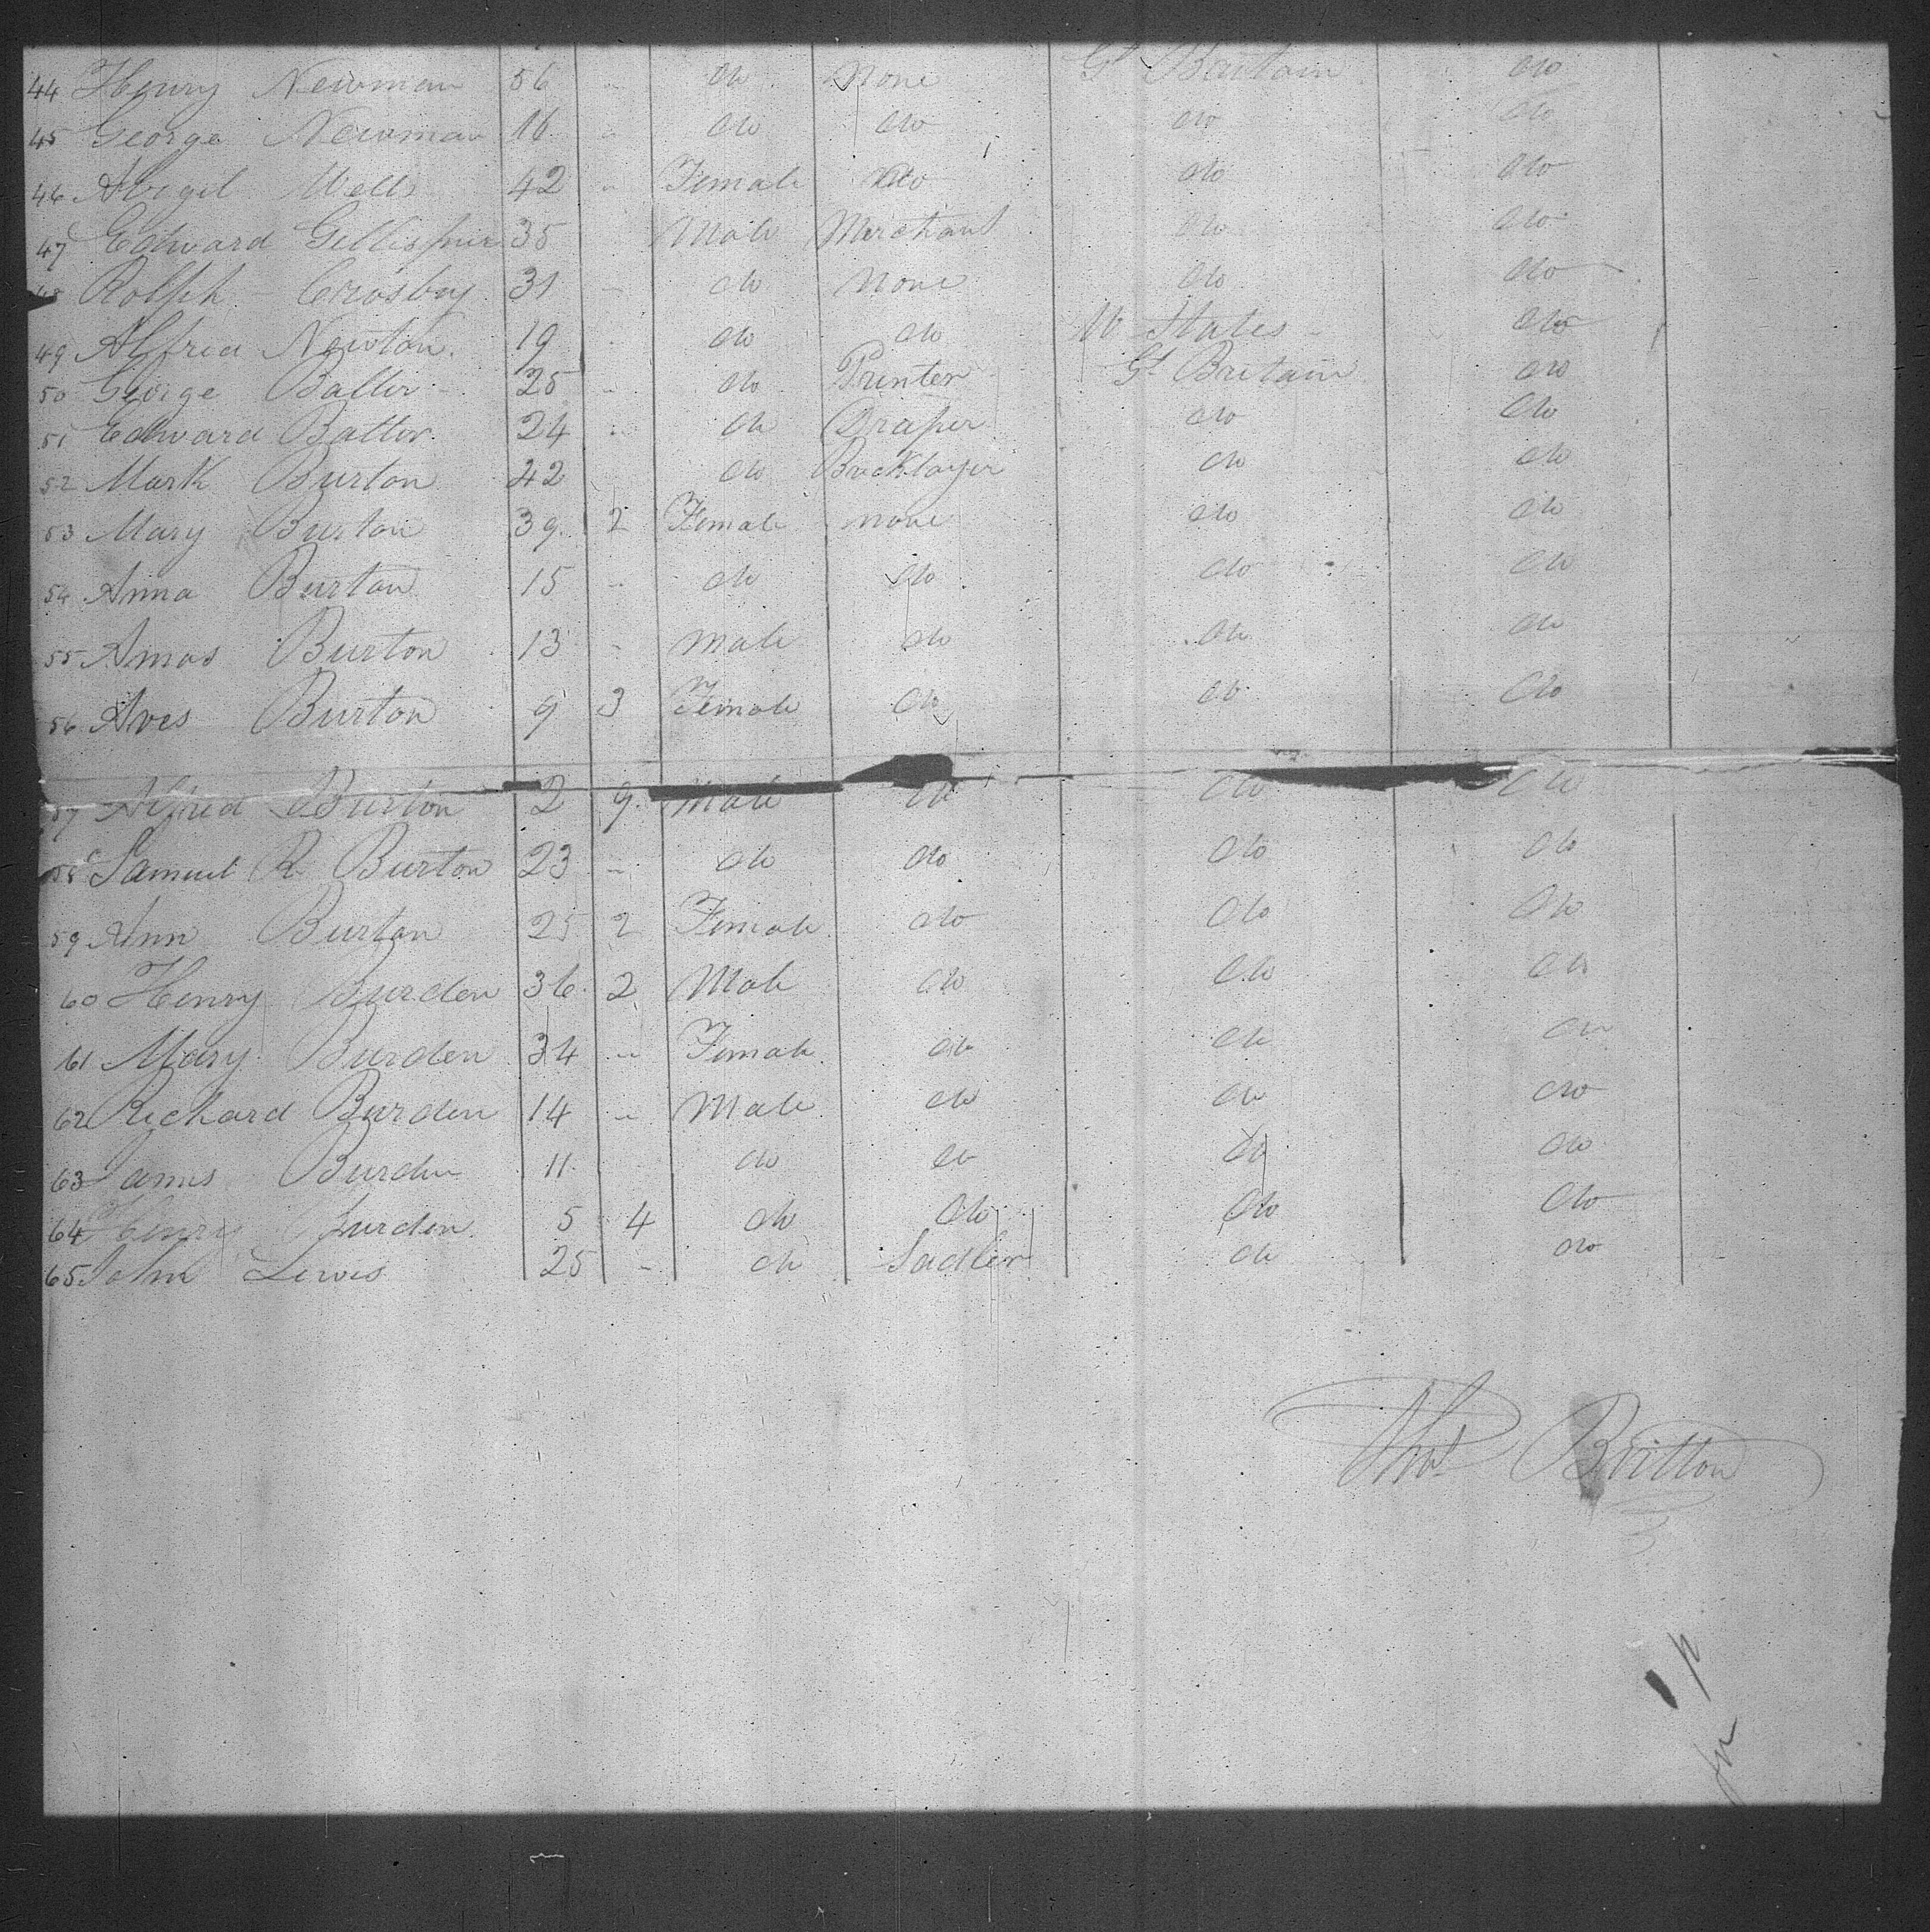 44 Henry Newman 56 " do None Gt Britain do
45 George Newman 16 " do do do do
46 Abigel Wells 42 " Female do do do
47 Edward Gillispier 35 Male Merchant do do
48 Rolph - Crosbey 31 - do None do do
49 Alfred Newton 19 do do U States - do
50 George Balter - 25 - do Printer Gt Britain do
51 Edward Balter 24 - do Draper do do
52 Mark Burton 42 do Bricklayer do do
53 Mary Burton 39 2 Female none do do
54 Anna Burton 15 - do do do do
55 Amos Burton 13 - Male do do do
56 Aves Burton 9 3 Female do do do
57 Alfred Burton 2 9 Male do do do
58 Samuel R Burton 23 - do do do do
59 Ann Burton 25 2 Female do do do
60 Henry Burden 36 2 Male do do do
61 Mary Burden 34 " Female do do do
62 Richard Burden 14 " Male do do do
63 James Burden 11 do do do do
64 Henry Burden 5 4 do do do do
65 John Lewis 25 - do Sadler do do
Thos Britton